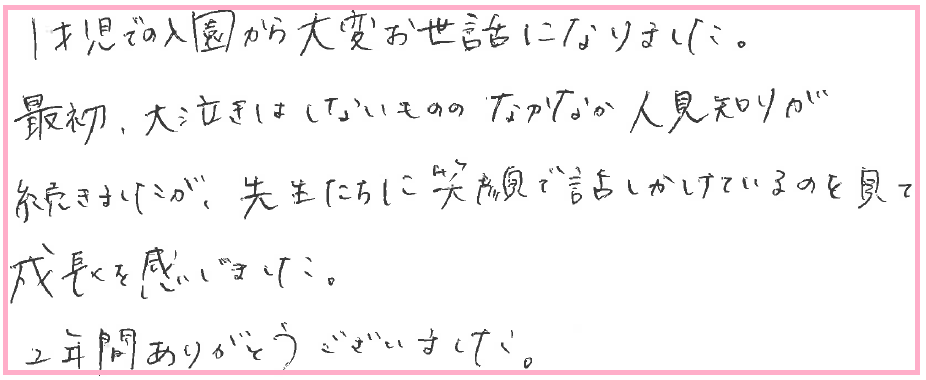 1才児での入園から大変お世話になりました。
最初、大泣きはしないものの なかなか人見知りが
続きましたが、先生たちに笑顔で話しかけているのを見て
成長を感じました。
2年間ありがとうございました。